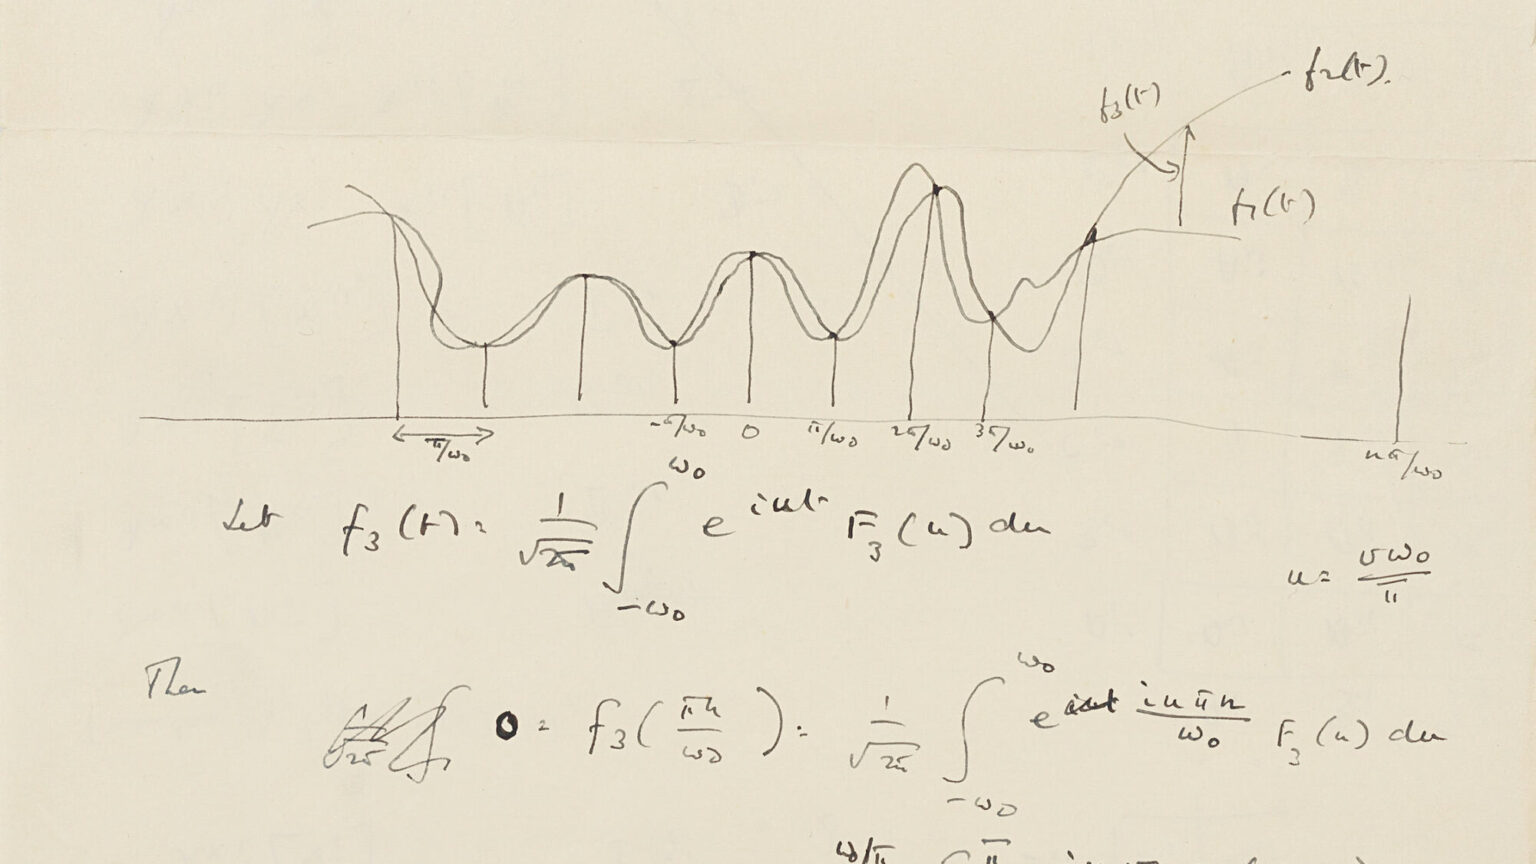 f₂(t).
f₃(t)
f₁(t)
-π/ω₀ 0 π/ω₀ 2π/ω₀ 3π/ω₀
π/ω₀
nπ/ω₀
Let f₃(t) = 1/√2π ∫_{-ω₀}^{ω₀} e^{iut} F₃(u) du
u = vω₀/π
Then 0 = f₃(πn/ω₀) = 1/√2π ∫_{-ω₀}^{ω₀} e^{iuπn/ω₀} F₃(u) du